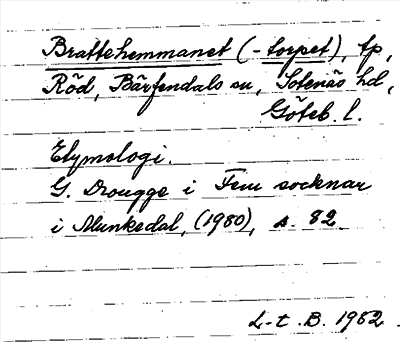 Brattehemmanet (-torpet), tp,
Röd, Bärfendals sn, Sotenäs hd,
Göteb. l.
Etymologi.
G. Drougge i Fem socknar
i Munkedal, (1980), s. 82
L-t. B. 1982